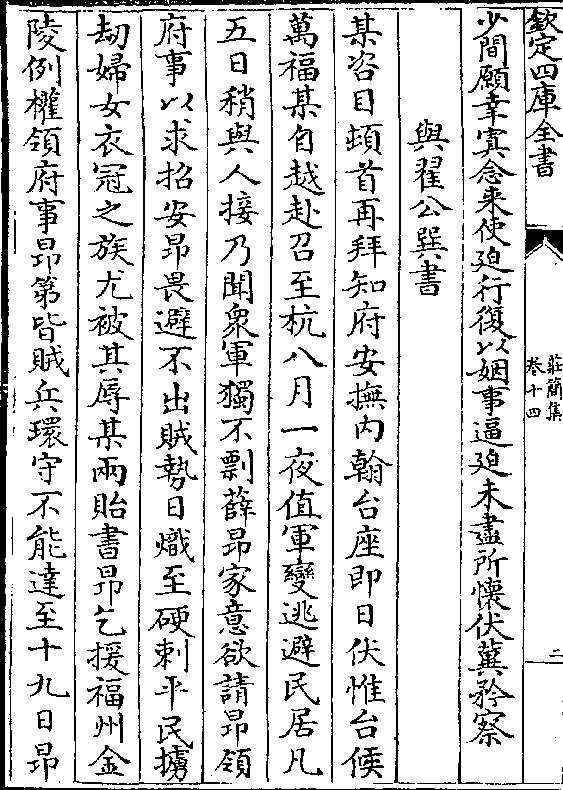 欽定四庫全書
莊簡集
卷十四
二
少間願幸寘念来使廹行復以姻事逼廹未盡所懷伏冀矜察
與翟公巽書
某咨目頓首再拜知府安撫内翰台座即日伏惟台候
萬福某自越赴召至杭八月一夜值軍變逃避民居凡
五日稍與人接乃聞衆軍獨不剽薛昂家意欲請昂領
府事以求招安昂畏避不出賊勢日熾至硬刺平民擄
劫婦女衣冠之族尤被其辱某兩貽書昂乞援福州金
陵例權領府事昂第皆賊兵環守不能達至十九日昂